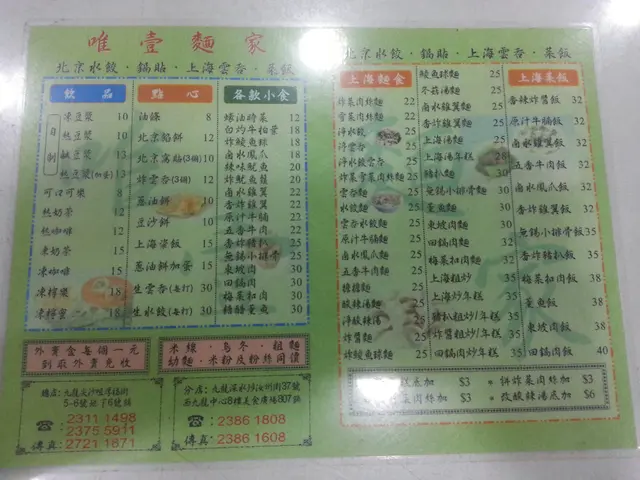 唯壹麵家
北京水餃·鍋貼·上海雲吞·菜飯
飲品
自制
凍豆漿 10
熱豆漿 10
鹹豆漿 13
熱豆漿(加蛋) 13
可口可樂 8
熱奶茶 12
熱咖啡 12
凍奶茶 15
凍咖啡 15
凍檸樂 18
凍檸蜜 18
點心
油條 8
北京餡餅 12
北京窩貼(3個) 10
炸雲吞(3個) 12
蔥油餅 10
豆沙餅 10
上海粢飯 15
蔥油餅加蛋 15
生雲吞(每打) 30
生水餃(每打) 30
各款小食
蠔油時菜 12
白灼牛柏葉 18
炸鯪魚球 18
鹵水鳳爪 18
辣味魷魚 20
炸魷魚鬚 20
鹵水雞翼 22
香炸雞翼 22
原汁牛腩 23
五香牛肉 23
香炸豬扒 30
無錫小排骨 30
東坡肉 30
回鍋肉 30
梅菜扣肉 30
糖醋薰魚 30
外賣盒每個一元
到取外賣免收
米線·烏冬·粗麵
幼麵·米粉及粉絲同價
5-6號地下6號舖
☎:2311 1498
2375 5911
傳真:2721 1871
分店:九龍深水埗汝州街37號
西九龍中心8樓美食廣場807舖
☎:2386 1808
傳真:2386 1608
北京水餃·鍋貼·上海雲吞·菜飯
上海麵食
炸菜肉絲麵 22
雪菜肉絲麵 22
淨水餃
淨雲吞
淨水餃雲吞
炸菜雪菜肉絲麵
雲吞麵
水餃麵
雲吞水餃麵
原汁牛腩麵 25
鹵水鳳爪麵 25
五香牛肉麵 25
豬腳麵 25
酸辣湯麵 25
淨酸辣湯 25
炸醬麵 25
炸鯪魚球麵 25
鯪魚球麵 25
冬菇湯麵 25
鹵水雞翼麵 25
香炸雞翼麵 25
上海湯麵 25
上海湯年糕 28
豬扒麵 30
無錫小排骨麵 30
薰魚麵 30
東坡肉麵 30
回鍋肉麵 30
梅菜扣肉麵 32
上海粗炒 35
上海炒年糕 35
豬扒炒粗/年糕 35
炸醬炒粗/年糕 35
回鍋肉炒粗/年糕 35
上海菜飯
香辣炸醬飯 32
原汁牛腩飯 32
鹵水雞翼飯 32
五香牛肉飯 32
鹵水鳳爪飯 32
香炸雞翼飯 32
無錫小排骨飯 35
香炸豬扒飯 35
梅菜扣肉飯 38
薰魚飯 38
東坡肉飯 38
回鍋肉飯 40
底加 $3 · 拼炸菜肉絲加 $3
肉絲加 $3 · 改酸辣湯底加 $6